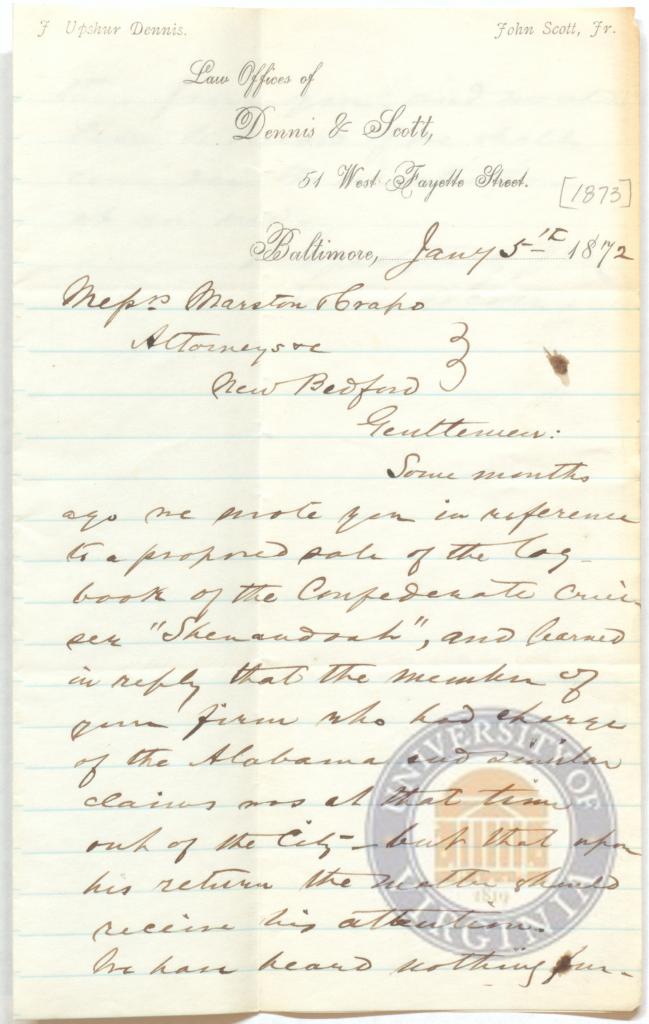 J Upshur Dennis. John Scott, Jr.
Law Offices of
Dennis & Scott,
51 West Fayette Street.
[1873]
Baltimore, Jany 5th 1872
Messrs Marston & Crapo
Attorneys &c
New Bedford
Gentlemen:
Some months
ago we wrote you in reference
to a proposed sale of the Log-
book of the Confederate Crui-
ser "Shenandoah", and learned
in reply that the member of
your firm who had charge
of the Alabama and similar
claims was at that time
out of the City – but that upon
his return the matter should
receive his attention.
We have heard nothing fur-
UNIVERSITY OF VIRGINIA
1819